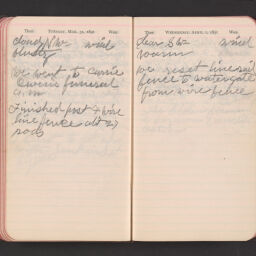 Ther. Tuesday, Mar. 31, 1891 Wea.
cloudy N W wind
blustry
we went to Carrie
Owens funeral
a.m.
Finished post & wire
line fence all 27
rods
Ther. Wednesday, April 1, 1891 Wea.
clear S W wind
warm
we reset line rail
fence to watergate
from wire fence